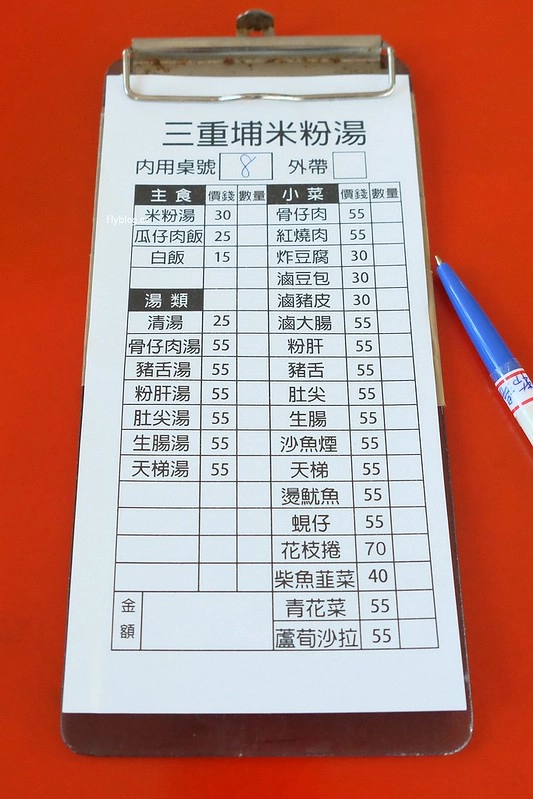 三重埔米粉湯
內用桌號 8 外帶
主食 價錢 數量 小菜 價錢 數量
米粉湯 30 骨仔肉 55
瓜仔肉飯 25 紅燒肉 55
白飯 15 炸豆腐 30
滷豆包 30
湯類 滷豬皮 30
清湯 25 滷大腸 55
骨仔肉湯 55 粉肝 55
豬舌湯 55 豬舌 55
粉肝湯 55 肚尖 55
肚尖湯 55 生腸 55
生腸湯 55 沙魚煙 55
天梯湯 55 天梯 55
燙魷魚 55
蜆仔 55
花枝捲 70
柴魚韭菜 40
金額 青花菜 55
蘆荀沙拉 55